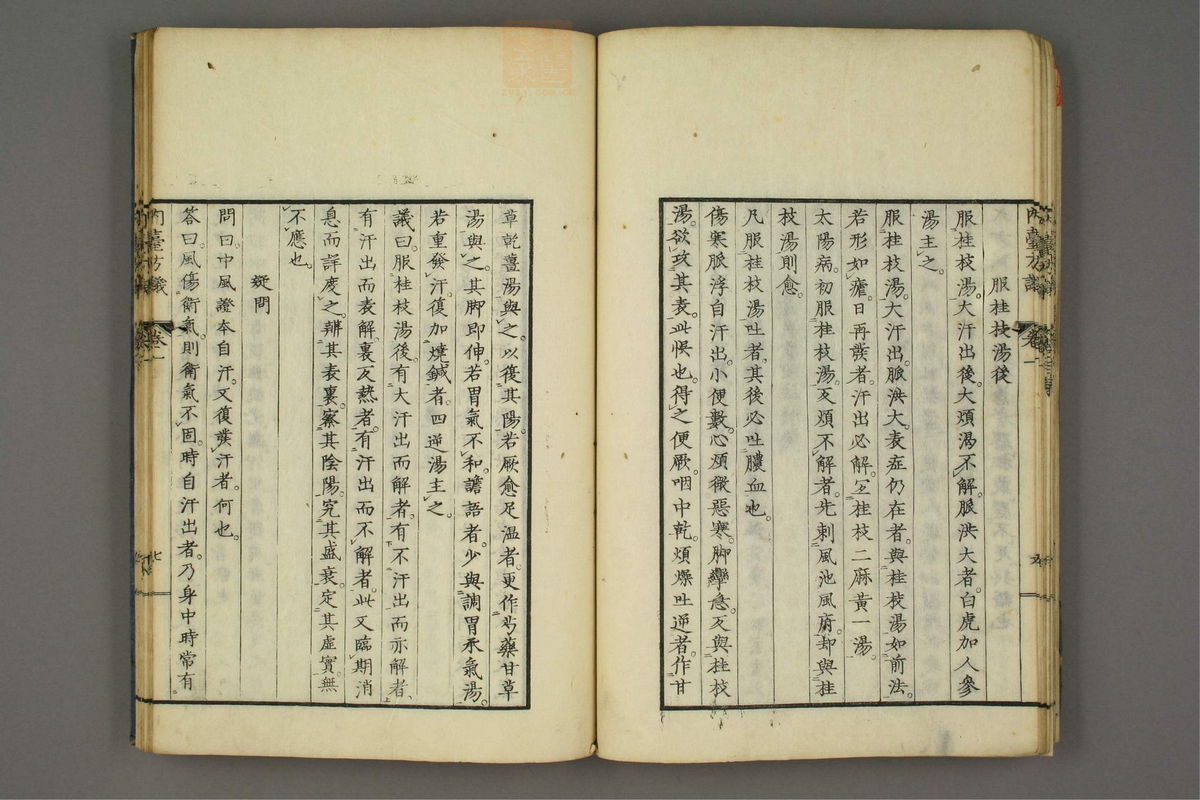 服桂枝湯後
服桂枝湯。大汗出後。大煩渴不解。脈洪大者。白虎加人參
湯主之。
服桂枝湯。大汗出。脈洪大。表症仍在者。與桂枝湯如前法。
若形如瘧。日再發者。汗出必解。宜桂枝二麻黃一湯。
太陽病。初服桂枝湯。反煩不解者。先刺風池風府。却與桂
枝湯則愈。
凡服桂枝湯吐者。其後必吐膿血也。
傷寒脈浮自汗出。小便數。心煩微惡寒。脚攣急。反與桂枝
湯。欲攻其表。此悞也。得之便厥。咽中乾。煩燥吐逆者。作甘
草乾薑湯與之。以復其陽。若厥愈足溫者。更作芍藥甘草
湯與之。其脚即伸。若胃氣不和。譫語者。少與調胃承氣湯。
若重發汗。復加燒鍼者。四逆湯主之。
議曰。服桂枝湯後。有大汗出而解者。有不汗出而亦解者、
有汗出而表解。裏反熱者。有汗出而不解者。此又臨期消
息而詳度之。辨其表裏。察其陰陽。究其盛衰。定其虛實。無
不應也。
疑問
問曰。中風證本自汗。又復發汗者。何也。
答曰。風傷衛氣。則衛氣不固。時自汗出者。乃身中時常有
內臺方議
卷一
七